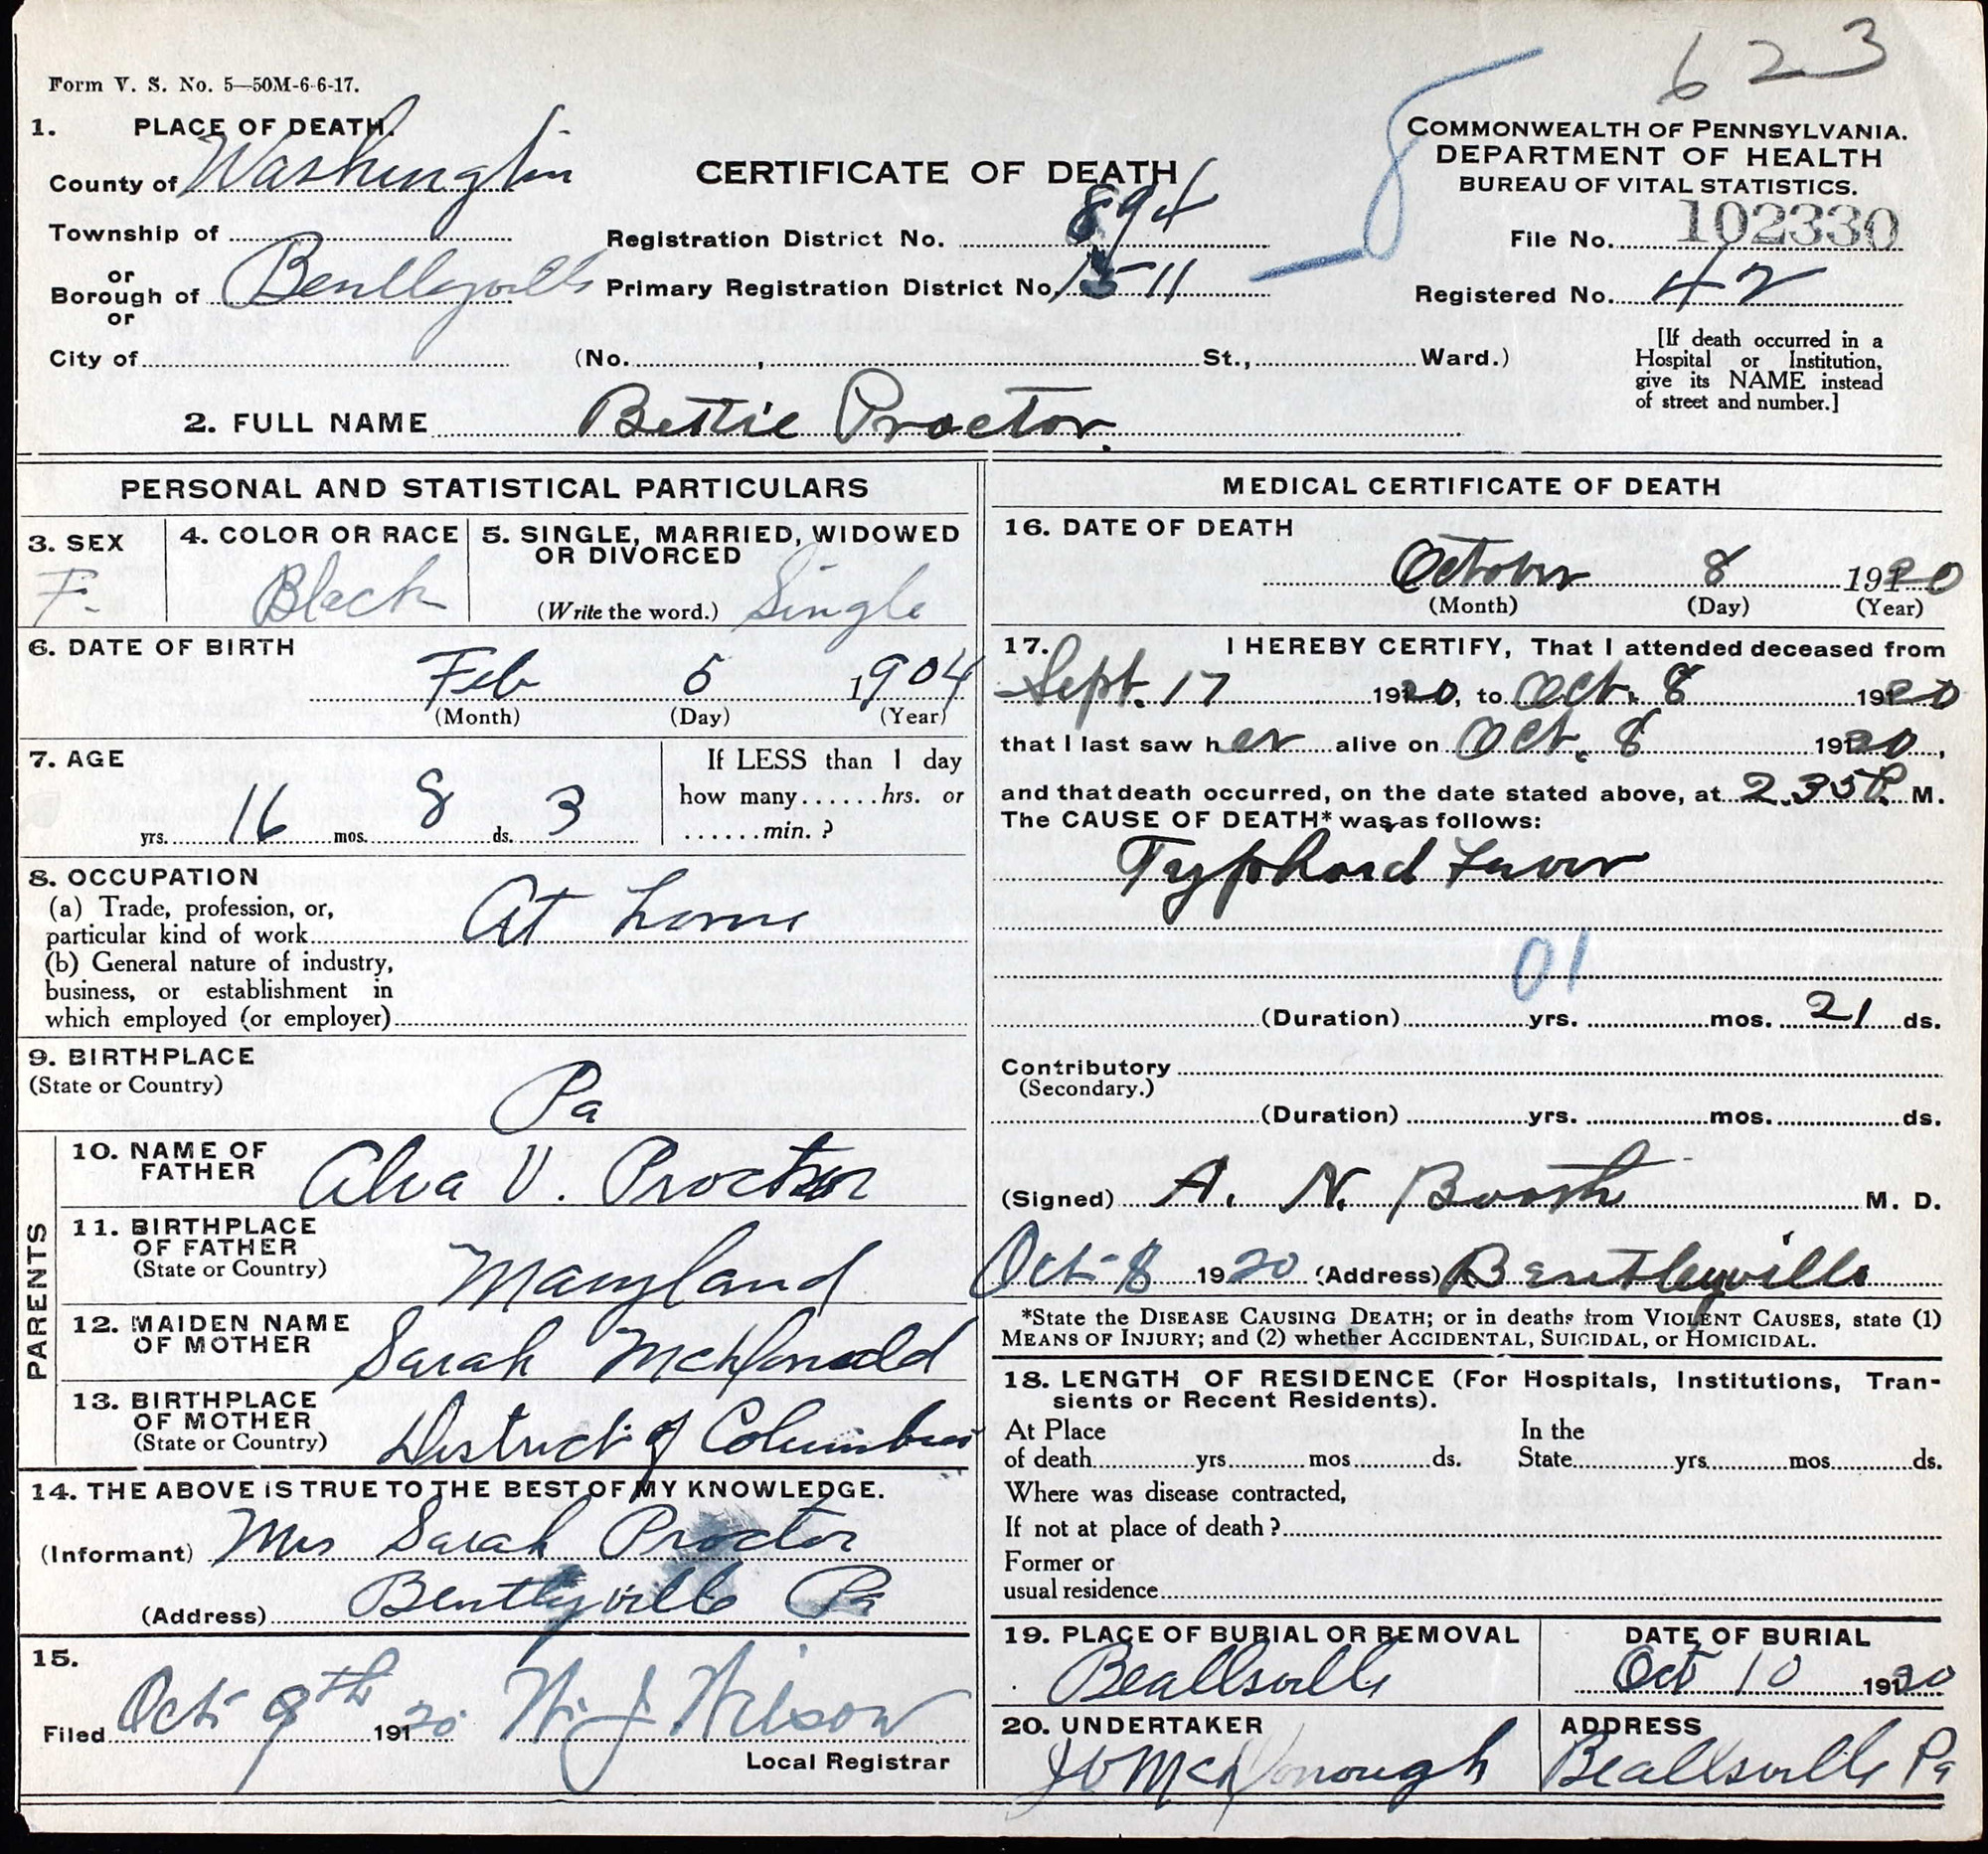 623
Form V. S. No. 5—50M-6-6-17.
1. PLACE OF DEATH.
County of Washington
Township of
or
Borough of Bentleyville
or
City of (No. , St., Ward.)
CERTIFICATE OF DEATH
Registration District No. 894
Primary Registration District No. 1511
COMMONWEALTH OF PENNSYLVANIA.
DEPARTMENT OF HEALTH
BUREAU OF VITAL STATISTICS.
File No. 102330
Registered No. 42
[If death occurred in a
Hospital or Institution,
give its NAME instead
of street and number.]
2. FULL NAME Bettie Proctor.
PERSONAL AND STATISTICAL PARTICULARS
3. SEX
F.
4. COLOR OR RACE
Black
5. SINGLE, MARRIED, WIDOWED
OR DIVORCED
(Write the word.) Single
6. DATE OF BIRTH
Feb 5 1904
(Month) (Day) (Year)
7. AGE
yrs. 16 mos. 8 ds. 3
If LESS than 1 day
how many......hrs. or
......min. ?
8. OCCUPATION
(a) Trade, profession, or,
particular kind of work At home
(b) General nature of industry,
business, or establishment in
which employed (or employer)
9. BIRTHPLACE
(State or Country)
Pa
PARENTS
10. NAME OF
FATHER Alva V. Proctor
11. BIRTHPLACE
OF FATHER
(State or Country) Maryland
12. MAIDEN NAME
OF MOTHER Sarah McDonald
13. BIRTHPLACE
OF MOTHER
(State or Country) District of Columbia
14. THE ABOVE IS TRUE TO THE BEST OF MY KNOWLEDGE.
(Informant) Mrs Sarah Proctor
(Address) Bentleyville Pa
15.
Filed Oct 9th 1920 W. J. Wilson
Local Registrar
MEDICAL CERTIFICATE OF DEATH
16. DATE OF DEATH
October 8 1920
(Month) (Day) (Year)
17. I HEREBY CERTIFY, That I attended deceased from
Sept. 17 1920, to Oct. 8 1920
that I last saw her alive on Oct. 8 1920,
and that death occurred, on the date stated above, at 2.35 P. M.
The CAUSE OF DEATH* was as follows:
Typhoid Fever
01
(Duration) yrs. mos. 21 ds.
Contributory
(Secondary.)
(Duration) yrs. mos. ds.
(Signed) A. N. Booth M. D.
Oct 8 1920 (Address) Bentleyville
*State the DISEASE CAUSING DEATH; or in deaths from VIOLENT CAUSES, state (1)
MEANS OF INJURY; and (2) whether ACCIDENTAL, SUICIDAL, or HOMICIDAL.
18. LENGTH OF RESIDENCE (For Hospitals, Institutions, Tran-
sients or Recent Residents).
At Place In the
of death yrs. mos. ds. State yrs. mos. ds.
Where was disease contracted,
If not at place of death?
Former or
usual residence
19. PLACE OF BURIAL OR REMOVAL
Beallsville
DATE OF BURIAL
Oct 10 1920
20. UNDERTAKER
McDonough
ADDRESS
Beallsville Pa